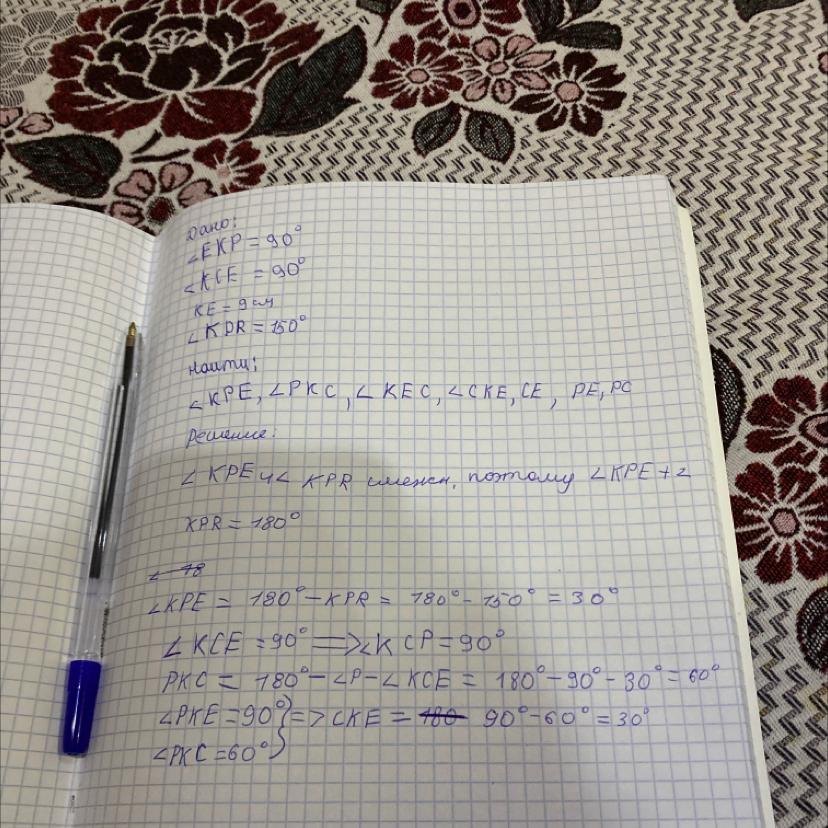 Дано:
∠EKP = 90°
∠KCE = 90°
KE = 9 см
∠KPR = 150°
Найти:
∠KPE, ∠PKC, ∠KEC, ∠CKE, CE, PE, PC
Решение:
∠KPE и ∠ KPR смежн, поэтому ∠KPE + ∠
KPR = 180°
∠ 18
∠KPE = 180° - KPR = 180° - 150° = 30°
∠KCE = 90° => ∠KCP = 90°
PKC = 180° - ∠P - ∠KCE = 180° - 90° - 30° = 60°
∠PKE = 90° } => CKE = 180 90° - 60° = 30°
∠PKC = 60°